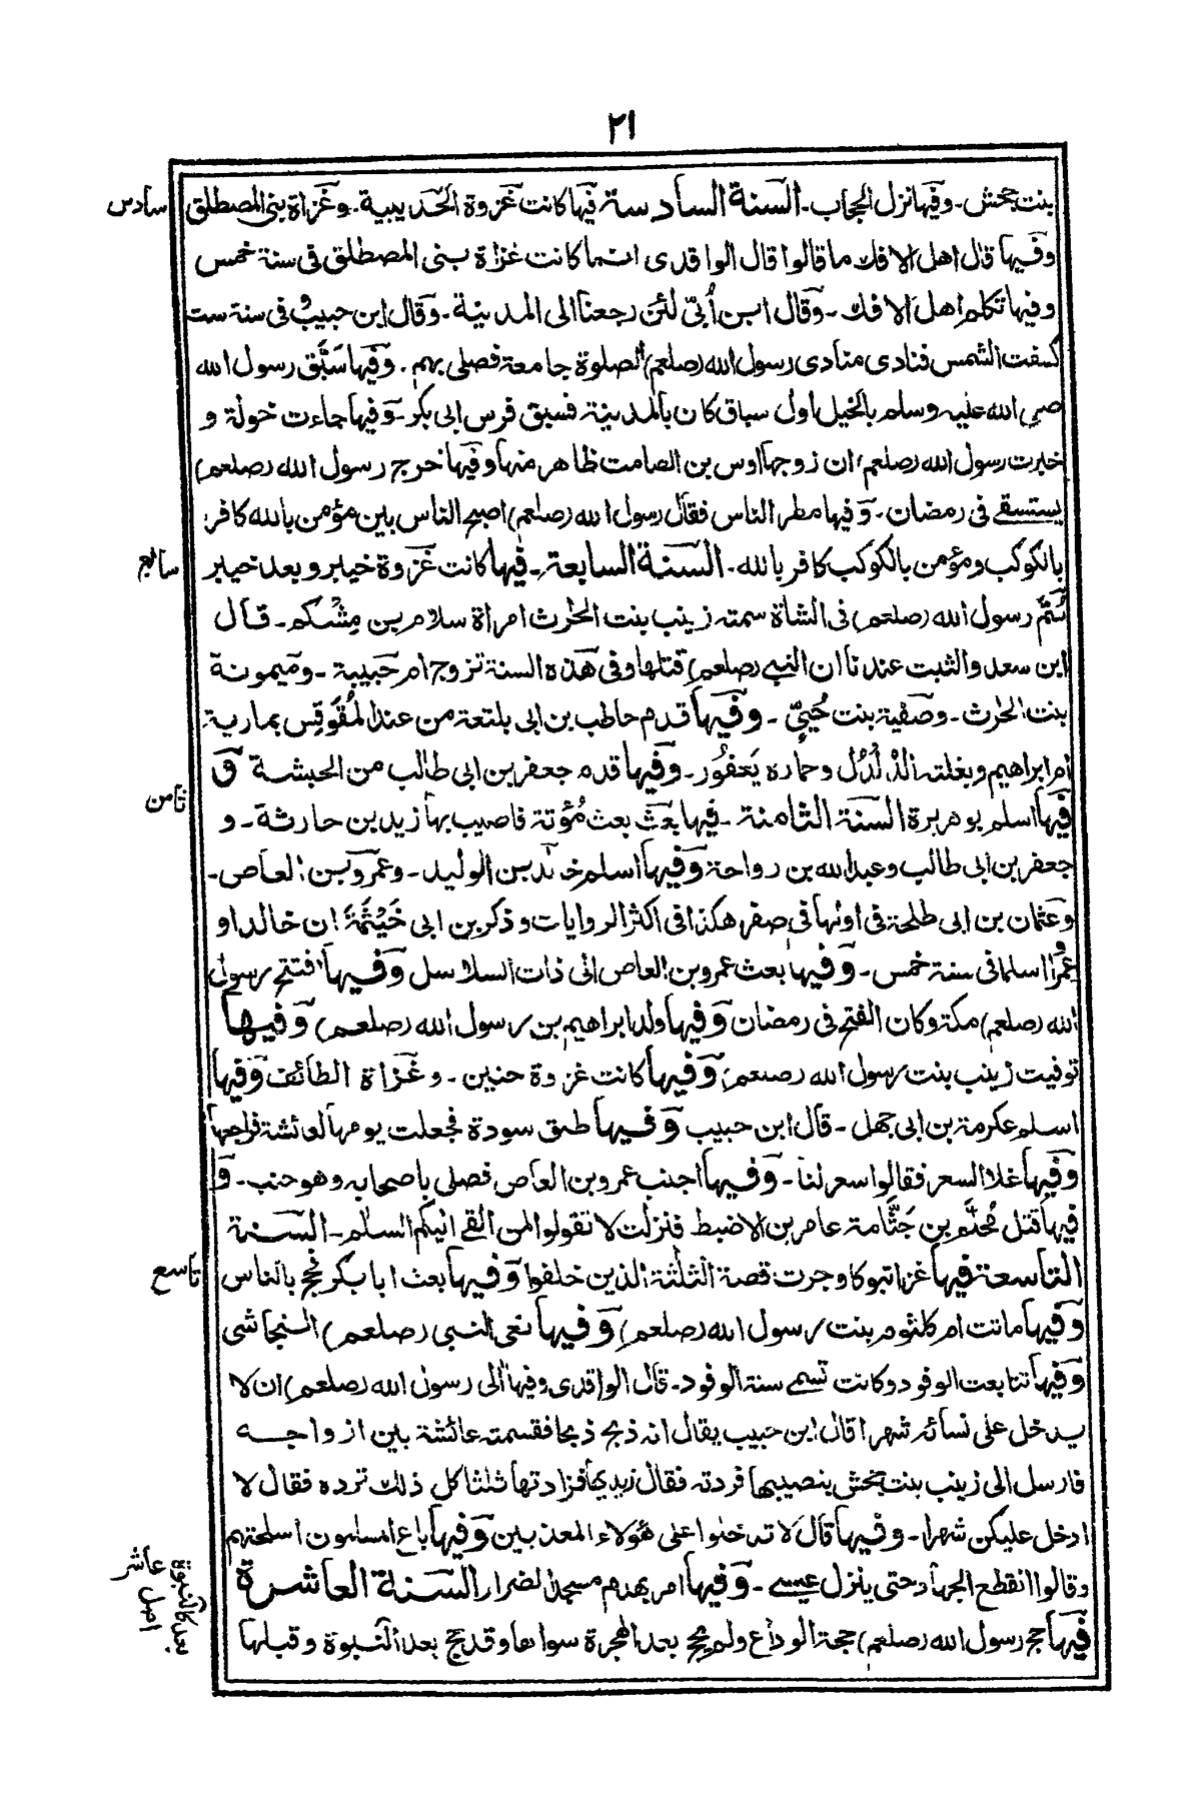 ٢١
بنت جحش ـ وفيها نزل الحجاب ـ السنة السادسة فيها كانت غزوة الحديبية ـ وغزاة بنى المصطلق
سادس
وفيها قال اهل الافك ما قالوا قال الواقدى انما كانت غزاة بنى المصطلق فى سنة خمس
وفيها تكلم اهل الافك ـ وقال ابن أُبىّ لئن رجعنا الى المدينة ـ وقال ابن حبيب وفى سنة ست
كسفت الشمس فنادى منادى رسول الله (صلعم) الصلوة جامعة فصلى بهم . وفيها سَبَّق رسول الله
صلى الله عليه وسلم بالخيل اول سباق كان بالمدينة فسبق فرس ابى بكر ـ وفيها جاءت خولة و
خبرت رسول الله (صلعم) ان زوجها اوس بن الصامت ظاهر منها وفيها خرج رسول الله (صلعم)
يستسقى فى رمضان ـ وفيها مطر الناس فقال رسول الله (صلعم) اصبح الناس بين مؤمن بالله كافر
بالكوكب ومؤمن بالكوكب كافر بالله ـ السنة السابعة ـ فيها كانت غزوة خيبر وبعد خيبر
سابع
سُمَّ رسول الله (صلعم) فى الشاة سمته زينب بنت الحٰرث امراة سلام بن مِشْكم ـ قال
ابن سعد والثبت عندنا ان النبى (صلعم) قتلها وفى هذه السنة تزوج ام حبيبة ـ وميمونة
بنت الحٰرث ـ وصفية بنت حُيَىّ ـ وفيها قدم حاطب بن ابى بلتعة من عند المُقَوقِس بمارية
ام ابراهيم وبغلته الدُلدُل وحماره يَعفُور ـ وفيها قدم جعفر بن ابى طالب من الحبشة و
فيها اسلم بو هريرة السنة الثامنة ـ فيها بَعَثَ بعث مُؤتة فاصيب بها زيد بن حارثة ـ و
ثامن
جعفر بن ابى طالب وعبد الله بن رواحة وفيها اسلم خالد بن الوليد ـ وعمرو بن العاص ـ
وعثمان بن ابى طلحة فى اولها فى صفر هكذا فى اكثر الروايات وذكر بن ابى خَيْثَمَة ان خالدا و
عمرًوا اسلما فى سنة خمس ـ وفيها بعث عمرو بن العاص الى ذات السلاسل وفيها افتتح رسول
الله (صلعم) مكة وكان الفتح فى رمضان وفيها ولد ابراهيم بن رسول الله (صلعم) وفيها
توفيت زينب بنت رسول الله (صلعم) وفيها كانت غزوة حنين ـ وغزاة الطائف وفيها
اسلم عكرمة بن ابى جهل ـ قال ابن حبيب وفيها طلق سودة فجعلت يومها لعائشة فراجعها
وفيها غلا السعر فقالوا سعر لنا ـ وفيها اجنب عمرو بن العاص فصلى باصحابه وهو جنب ـ و
فيها قتل مُحلَّم بن جَثَّامة عامر بن الاضبط فنزلت لا تقولوا لمن القى اليكم السلٰم ـ السنة
التاسعة فيها غزا تبوكا وجرت قصة الثلثة الذين خلفوا وفيها بعث ابا بكر فحج بالناس
تاسع
وفيها ماتت ام كلثوم بنت رسول الله (صلعم) وفيها نعى النبى (صلعم) النجاشى
وفيها تتابعت الوفود وكانت تسمى سنة الوفود ـ قال الواقدى وفيها اٰلى رسول الله (صلعم) ان لا
يدخل على نسائه شهرا قال ابن حبيب يقال انه ذبح ذبحا فقسمته عائشة بين ازواجه
فارسل الى زينب بنت جحش بنصيبها فردته فقال زيديها فزادتها ثلثا كل ذلك ترده فقال لا
ادخل عليكن شهرا ـ وفيها قال لا تدخلوا على هٰؤلاء المعذبين وفيها باع المسلمون اسلحتهم
وقالوا انقطع الجهاد حتى ينزل عيسى ـ وفيها امر بهدم مسجد الضرار السنة العاشرة
عاشر
فيها حج رسول الله (صلعم) حجة الوداع ولم يحج بعد الهجرة سواها وقد حج بعد النبوة وقبلها
اصل